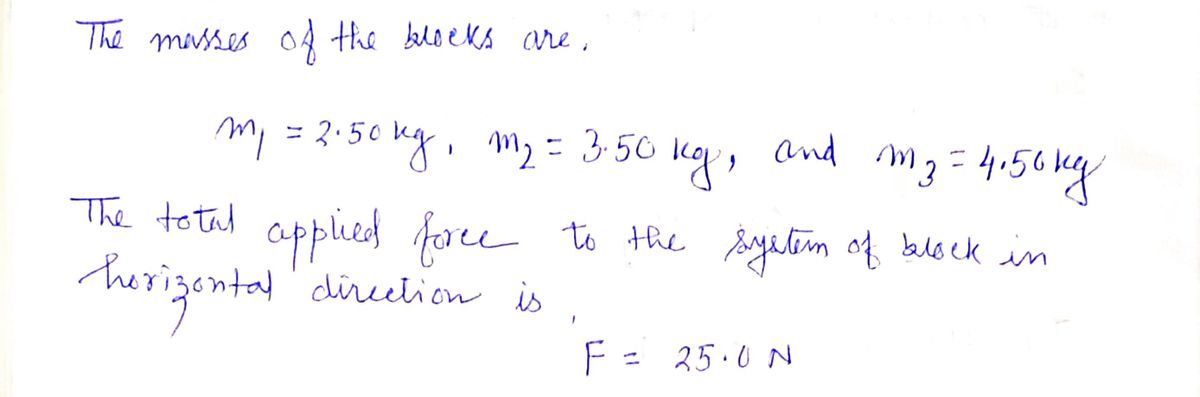 The masses of the blocks are,
m₁ = 2.50 kg, m₂ = 3.50 kg, and m₃ = 4.50 kg
The total applied force to the system of block in
horizontal direction is,
F = 25.0 N